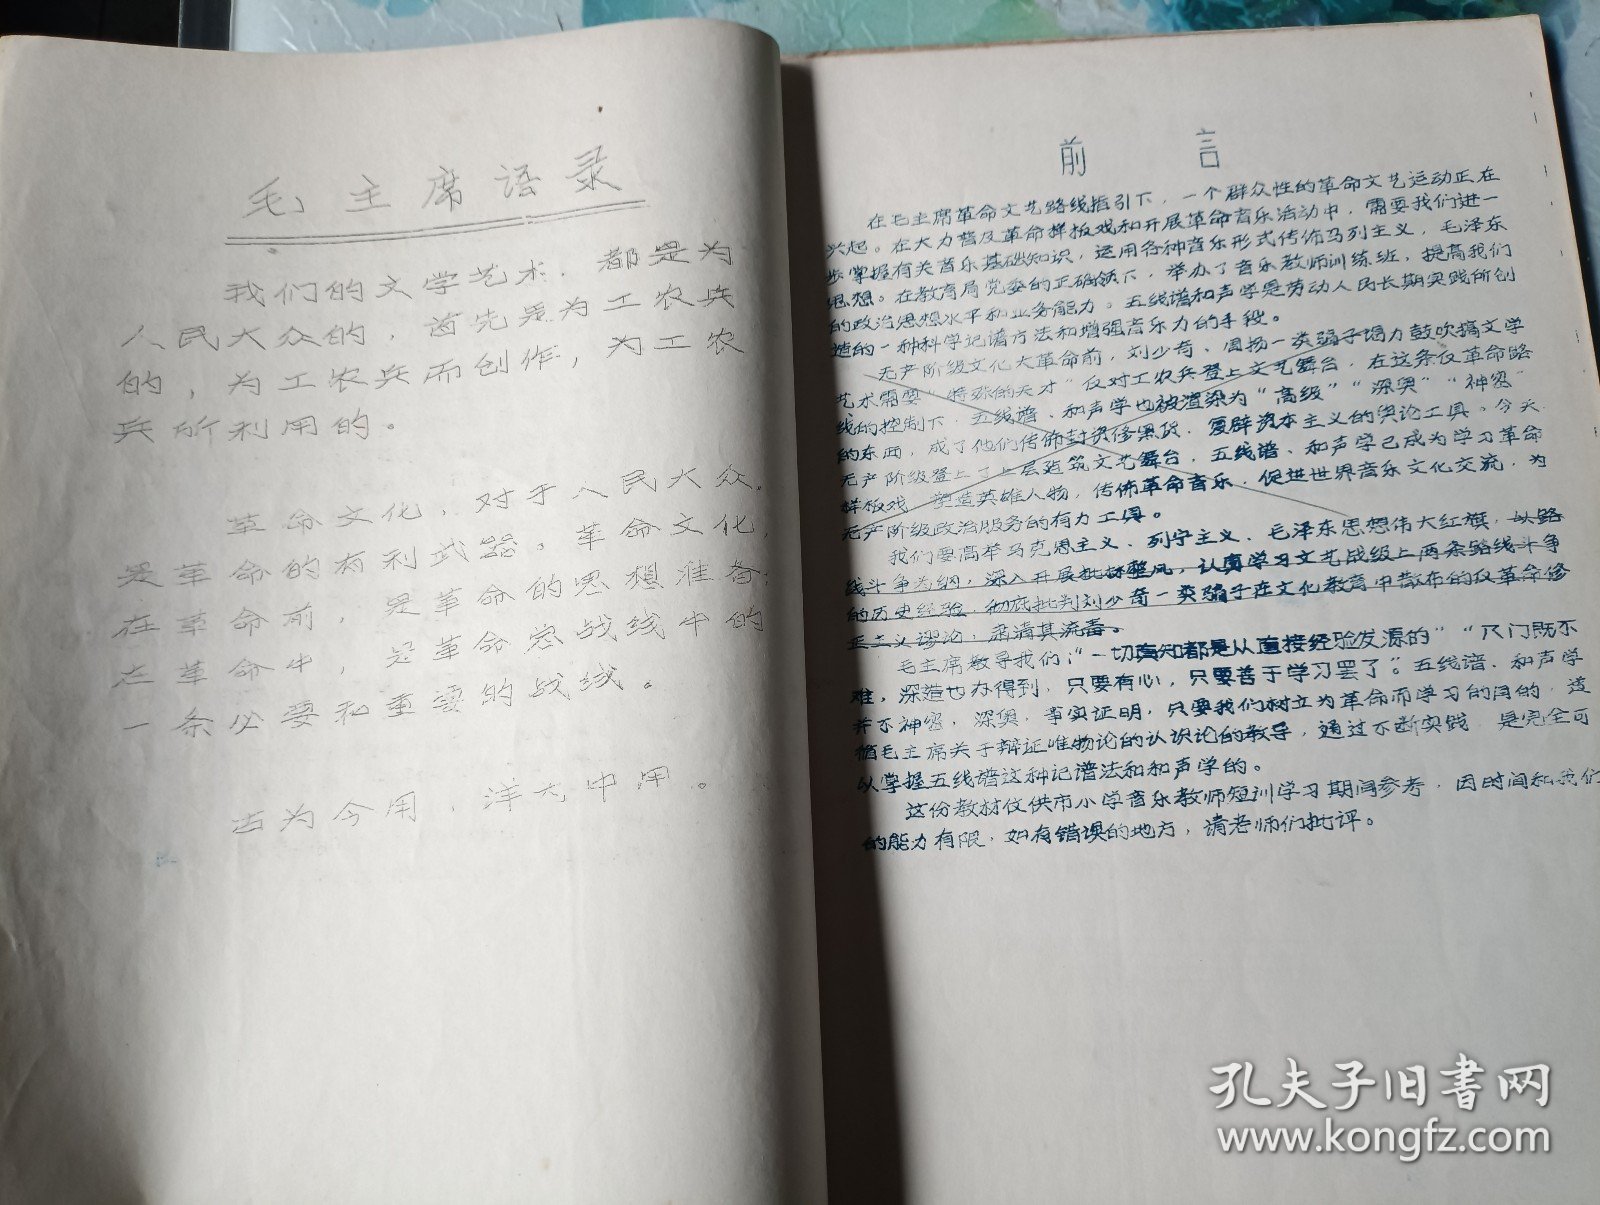 毛主席语录
我们的文学艺术，都是为
人民大众的，首先是为工农兵
的，为工农兵而创作，为工农
兵所利用的。
革命文化，对于人民大众，
是革命的有利武器。革命文化，
在革命前，是革命的思想准备；
在革命中，是革命总战线中的
一条必要和重要的战线。
古为今用，洋为中用。
前言
在毛主席革命文艺路线指引下，一个群众性的革命文艺运动正在
兴起。在大力普及革命样板戏和开展革命音乐活动中，需要我们进一
步掌握有关音乐基础知识，运用各种音乐形式传佈马列主义，毛泽东
思想。在教育局党委的正确领下，举办了音乐教师训练班，提高我们
的政治思想水平和业务能力。五线谱和声学是劳动人民长期实践所创
造的一种科学记谱方法和增强音乐力的手段。
无产阶级文化大革命前，刘少奇、周扬一类骗子竭力鼓吹搞文学
艺术需要“特殊的天才”仅对工农兵登上文艺舞台，在这条仅革命路
线的控制下，五线谱、和声学也被渲染为“高级”“深奥”“神密”
的东西，成了他们传佈封资修黑货，复辟资本主义的舆论工具。今天
无产阶级登上了上层建筑文艺舞台，五线谱、和声学已成为学习革命
样板戏，塑造英雄人物，传佈革命音乐，促进世界音乐文化交流，为
无产阶级政治服务的有力工具。
我们要高举马克思主义、列宁主义、毛泽东思想伟大红旗，以路
线斗争为纲，深入开展批林整风，认真学习文艺战线上两条路线斗争
的历史经验，彻底批判刘少奇一类骗子在文化教育中散布的仅革命修
正主义谬论，肃清其流毒。
毛主席教导我们：“一切真知都是从直接经验发源的”“入门既不
难，深造也办得到，只要有心，只要善于学习罢了”。五线谱、和声学
并不神密，深奥，事实证明，只要我们树立为革命而学习的目的，遵
循毛主席关于辩证唯物论的认识论的教导，通过不断实践，是完全可
以掌握五线谱这种记谱法和和声学的。
这份教材仅供市小学音乐教师短训学习期间参考，因时间和我们
的能力有限，如有错误的地方，请老师们批评。
孔夫子旧书网
www.kongfz.com